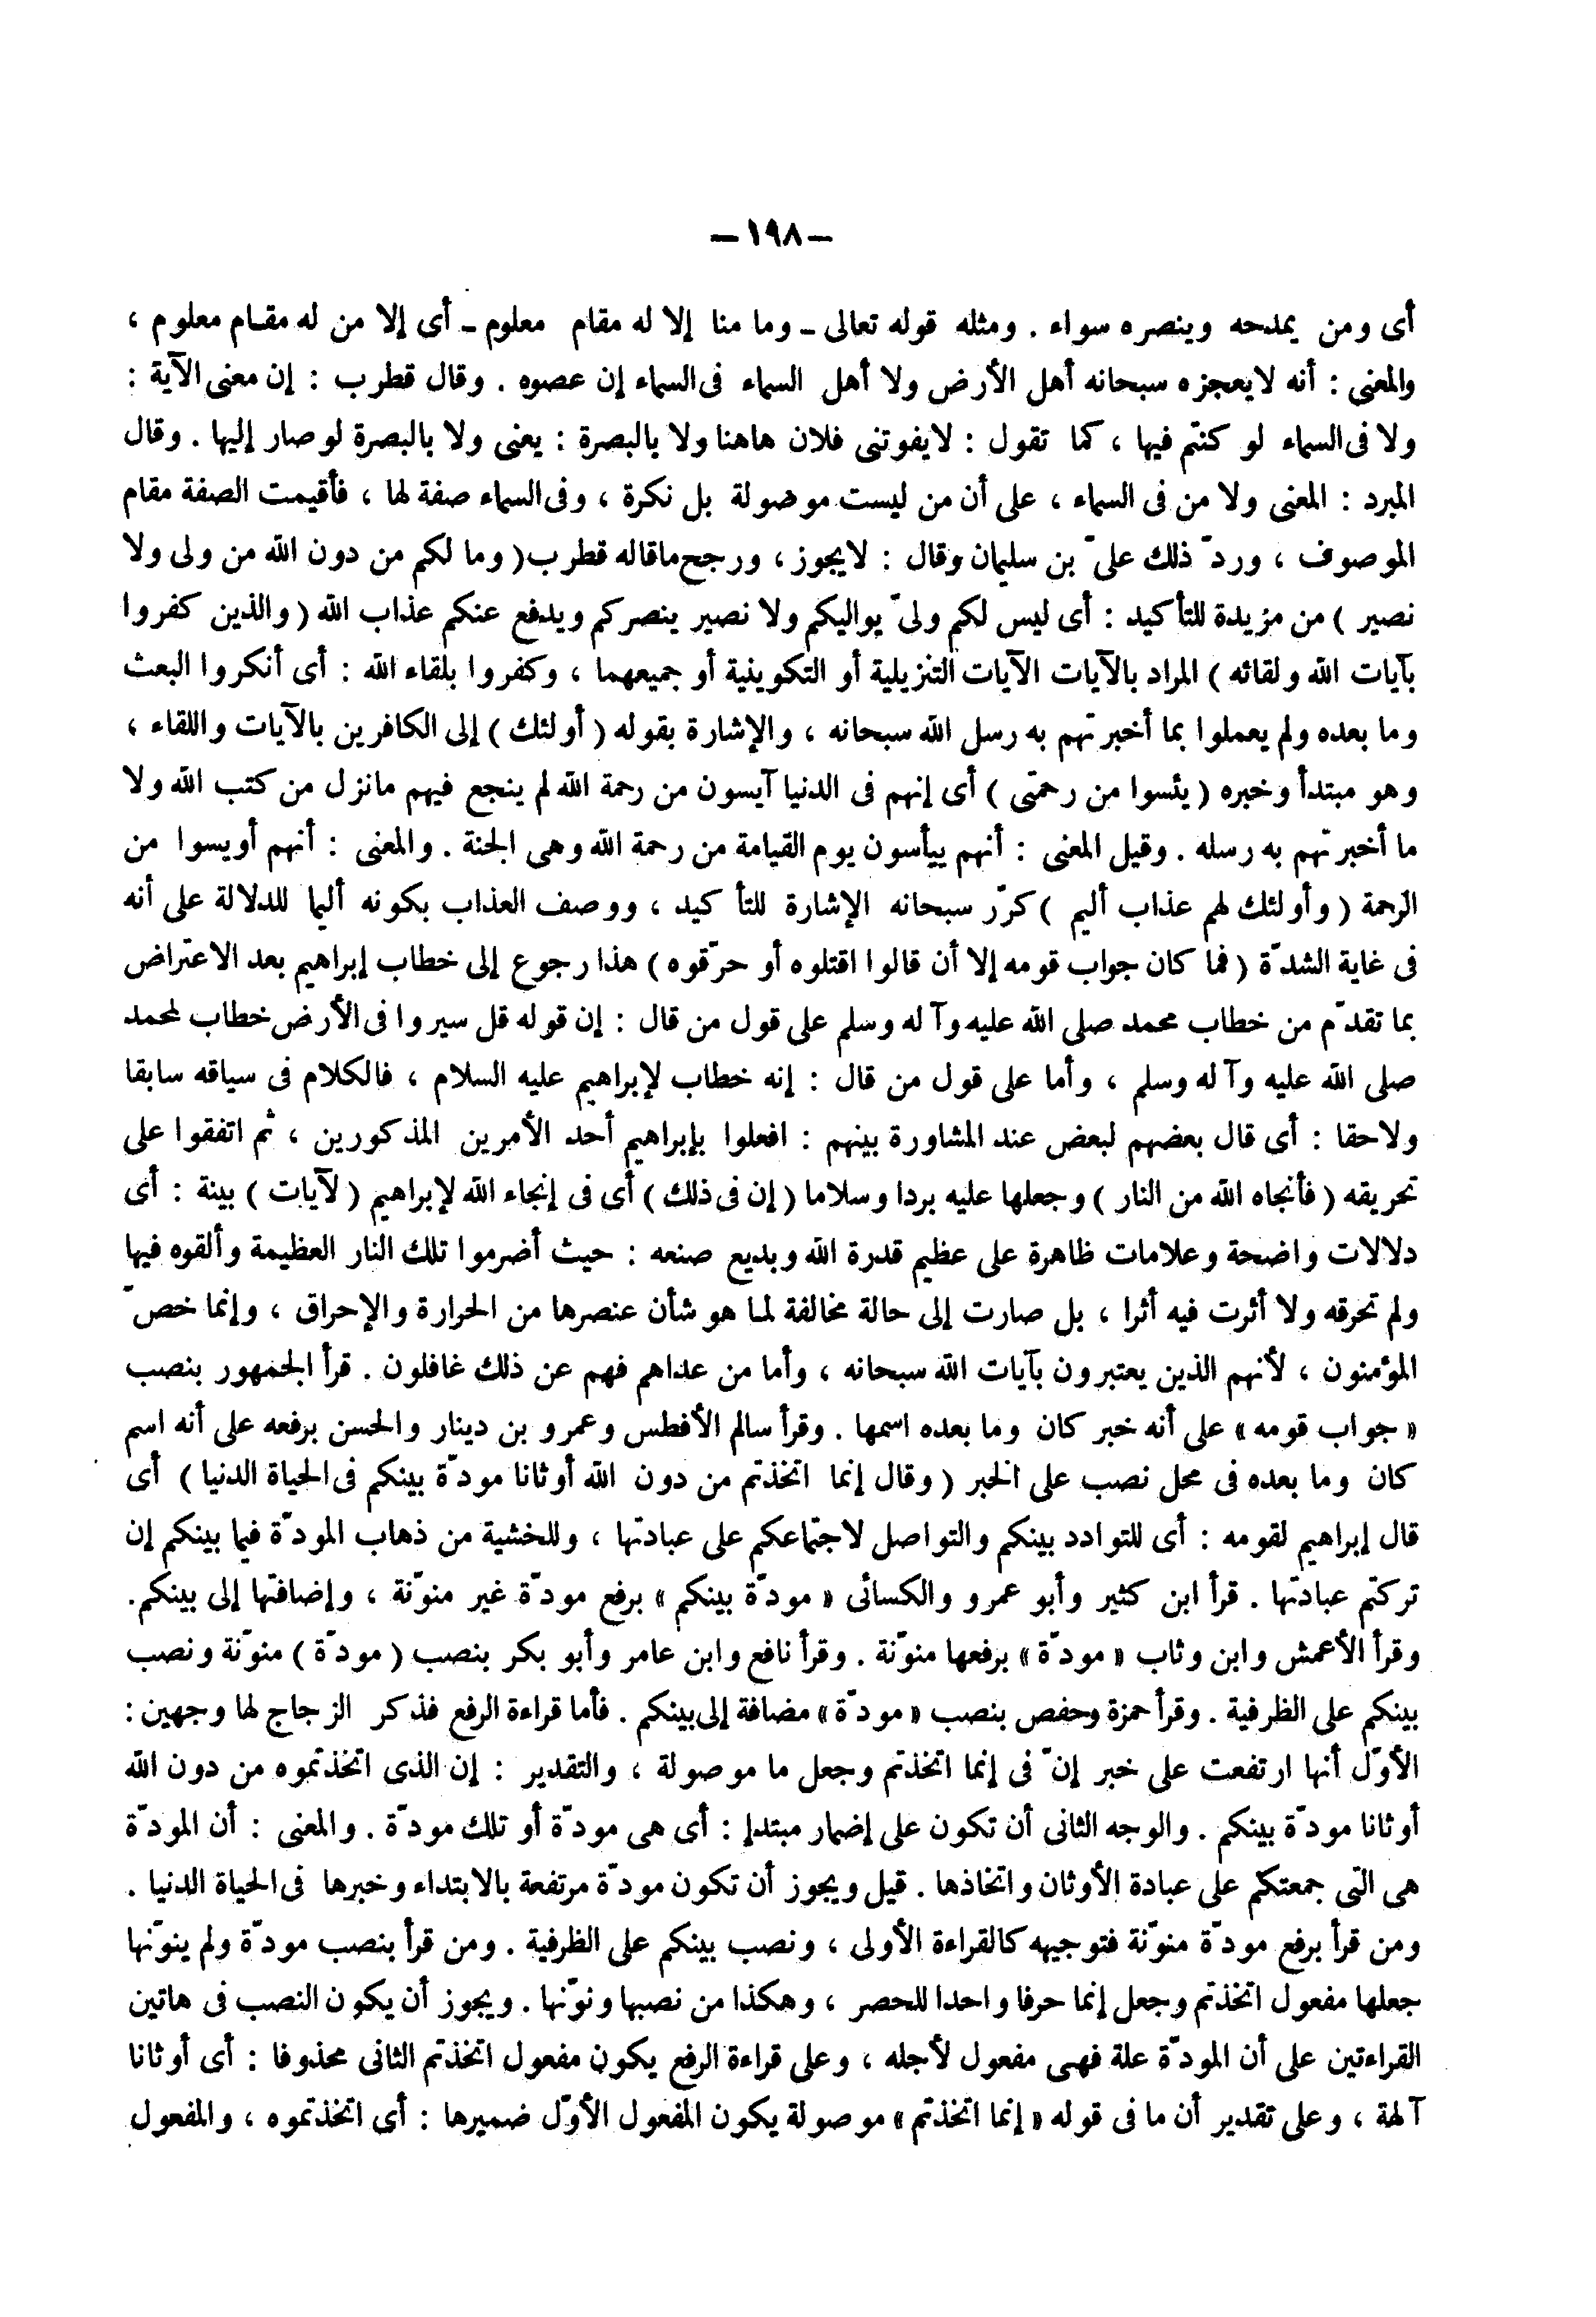 — ١٩٨ —
أى ومن يمدحه وينصره سواء . ومثله قوله تعالى ـ وما منا إلا له مقام معلوم ـ أى إلا من له مقام معلوم ،
والمعنى : أنه لايعجزه سبحانه أهل الأرض ولا أهل السماء فى السماء إن عصوه . وقال قطرب : إن معنى الآية :
ولا فى السماء لو كنتم فيها ، كما تقول : لايفوتنى فلان هاهنا ولا بالبصرة : يعنى ولا بالبصرة لو صار إليها . وقال
المبرد : المعنى ولا من فى السماء ، على أن من ليست موصولة بل نكرة ، وفى السماء صفة لها ، فأقيمت الصفة مقام
الموصوف ، وردّ ذلك علىّ بن سليمان وقال : لايجوز ، ورجح ماقاله قطرب ( وما لكم من دون الله من ولى ولا
نصير ) من مزيدة للتأكيد : أى ليس لكم ولىّ يواليكم ولا نصير ينصركم ويدفع عنكم عذاب الله ( والذين كفروا
بآيات الله ولقائه ) المراد بالآيات الآيات التنزيلية أو التكوينية أو جميعهما ، وكفروا بلقاء الله : أى أنكروا البعث
وما بعده ولم يعملوا بما أخبرتهم به رسل الله سبحانه ، والإشارة بقوله ( أولئك ) إلى الكافرين بالآيات واللقاء ،
وهو مبتدأ وخبره ( يئسوا من رحمتى ) أى إنهم فى الدنيا آيسون من رحمة الله لم ينجع فيهم مانزل من كتب الله ولا
ما أخبرتهم به رسله . وقيل المعنى : أنهم ييأسون يوم القيامة من رحمة الله وهى الجنة . والمعنى : أنهم أويسوا من
الرحمة ( وأولئك لهم عذاب أليم ) كرّر سبحانه الإشارة للتأكيد ، ووصف العذاب بكونه أليما للدلالة على أنه
فى غاية الشدّة ( فما كان جواب قومه إلا أن قالوا اقتلوه أو حرّقوه ) هذا رجوع إلى خطاب إبراهيم بعد الاعتراض
بما تقدّم من خطاب محمد صلى الله عليه وآله وسلم على قول من قال : إن قوله قل سيروا فى الأرض خطاب لمحمد
صلى الله عليه وآله وسلم ، وأما على قول من قال : إنه خطاب لإبراهيم عليه السلام ، فالكلام فى سياقه سابقا
ولاحقا : أى قال بعضهم لبعض عند المشاورة بينهم : افعلوا بإبراهيم أحد الأمرين المذكورين ، ثم اتفقوا على
تحريقه ( فأنجاه الله من النار ) وجعلها عليه بردا وسلاما ( إن فى ذلك ) أى فى إنجاء الله لإبراهيم ( لآيات ) بينة : أى
دلالات واضحة وعلامات ظاهرة على عظيم قدرة الله وبديع صنعه : حيث أضرموا تلك النار العظيمة وألقوه فيها
ولم تحرقه ولا أثرت فيه أثرا ، بل صارت إلى حالة مخالفة لما هو شأن عنصرها من الحرارة والإحراق ، وإنما خصّ
المؤمنون ، لأنهم الذين يعتبرون بآيات الله سبحانه ، وأما من عداهم فهم عن ذلك غافلون . قرأ الجمهور بنصب
« جواب قومه » على أنه خبر كان وما بعده اسمها . وقرأ سالم الأفطس وعمرو بن دينار والحسن برفعه على أنه اسم
كان وما بعده فى محل نصب على الخبر ( وقال إنما اتخذتم من دون الله أوثانا مودّة بينكم فى الحياة الدنيا ) أى
قال إبراهيم لقومه : أى للتوادد بينكم والتواصل لاجتماعكم على عبادتها ، وللخشية من ذهاب المودّة فيما بينكم إن
تركتم عبادتها . قرأ ابن كثير وأبو عمرو والكسائى « مودّة بينكم » برفع مودّة غير منوّنة ، وإضافتها إلى بينكم.
وقرأ الأعمش وابن وثاب « مودّة » برفعها منوّنة . وقرأ نافع وابن عامر وأبو بكر بنصب ( مودّة ) منوّنة ونصب
بينكم على الظرفية . وقرأ حمزة وحفص بنصب « مودّة » مضافة إلى بينكم . فأما قراءة الرفع فذكر الزجاج لها وجهين :
الأوّل أنها ارتفعت على خبر إنّ فى إنما اتخذتم وجعل ما موصولة ، والتقدير : إن الذى اتخذتموه من دون الله
أوثانا مودّة بينكم . والوجه الثانى أن تكون على إضمار مبتدإ : أى هى مودّة أو تلك مودّة . والمعنى : أن المودّة
هى التى جمعتكم على عبادة الأوثان واتخاذها . قيل ويجوز أن تكون مودّة مرتفعة بالابتداء وخبرها فى الحياة الدنيا .
ومن قرأ برفع مودّة منوّنة فتوجيهه كالقراءة الأولى ، ونصب بينكم على الظرفية . ومن قرأ بنصب مودّة ولم ينوّنها
جعلها مفعول اتخذتم وجعل إنما حرفا واحدا للحصر ، وهكذا من نصبها ونوّنها . ويجوز أن يكون النصب فى هاتين
القراءتين على أن المودّة علة فهى مفعول لأجله ، وعلى قراءة الرفع يكون مفعول اتخذتم الثانى محذوفا : أى أوثانا
آلهة ، وعلى تقدير أن ما فى قوله « إنما اتخذتم » موصولة يكون المفعول الأوّل ضميرها : أى اتخذتموه ، والمفعول